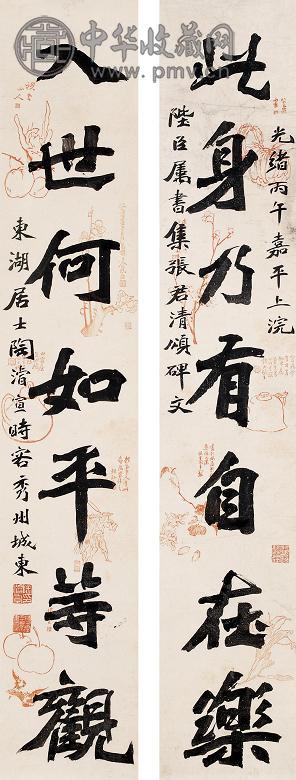 中华收藏网
www.pmv.cn
此身乃有自在樂
光緒丙午嘉平上浣
陛臣屬書集張君清頌碑文
入世何如平等觀
東湖居士陶濬宣時客秀州城東